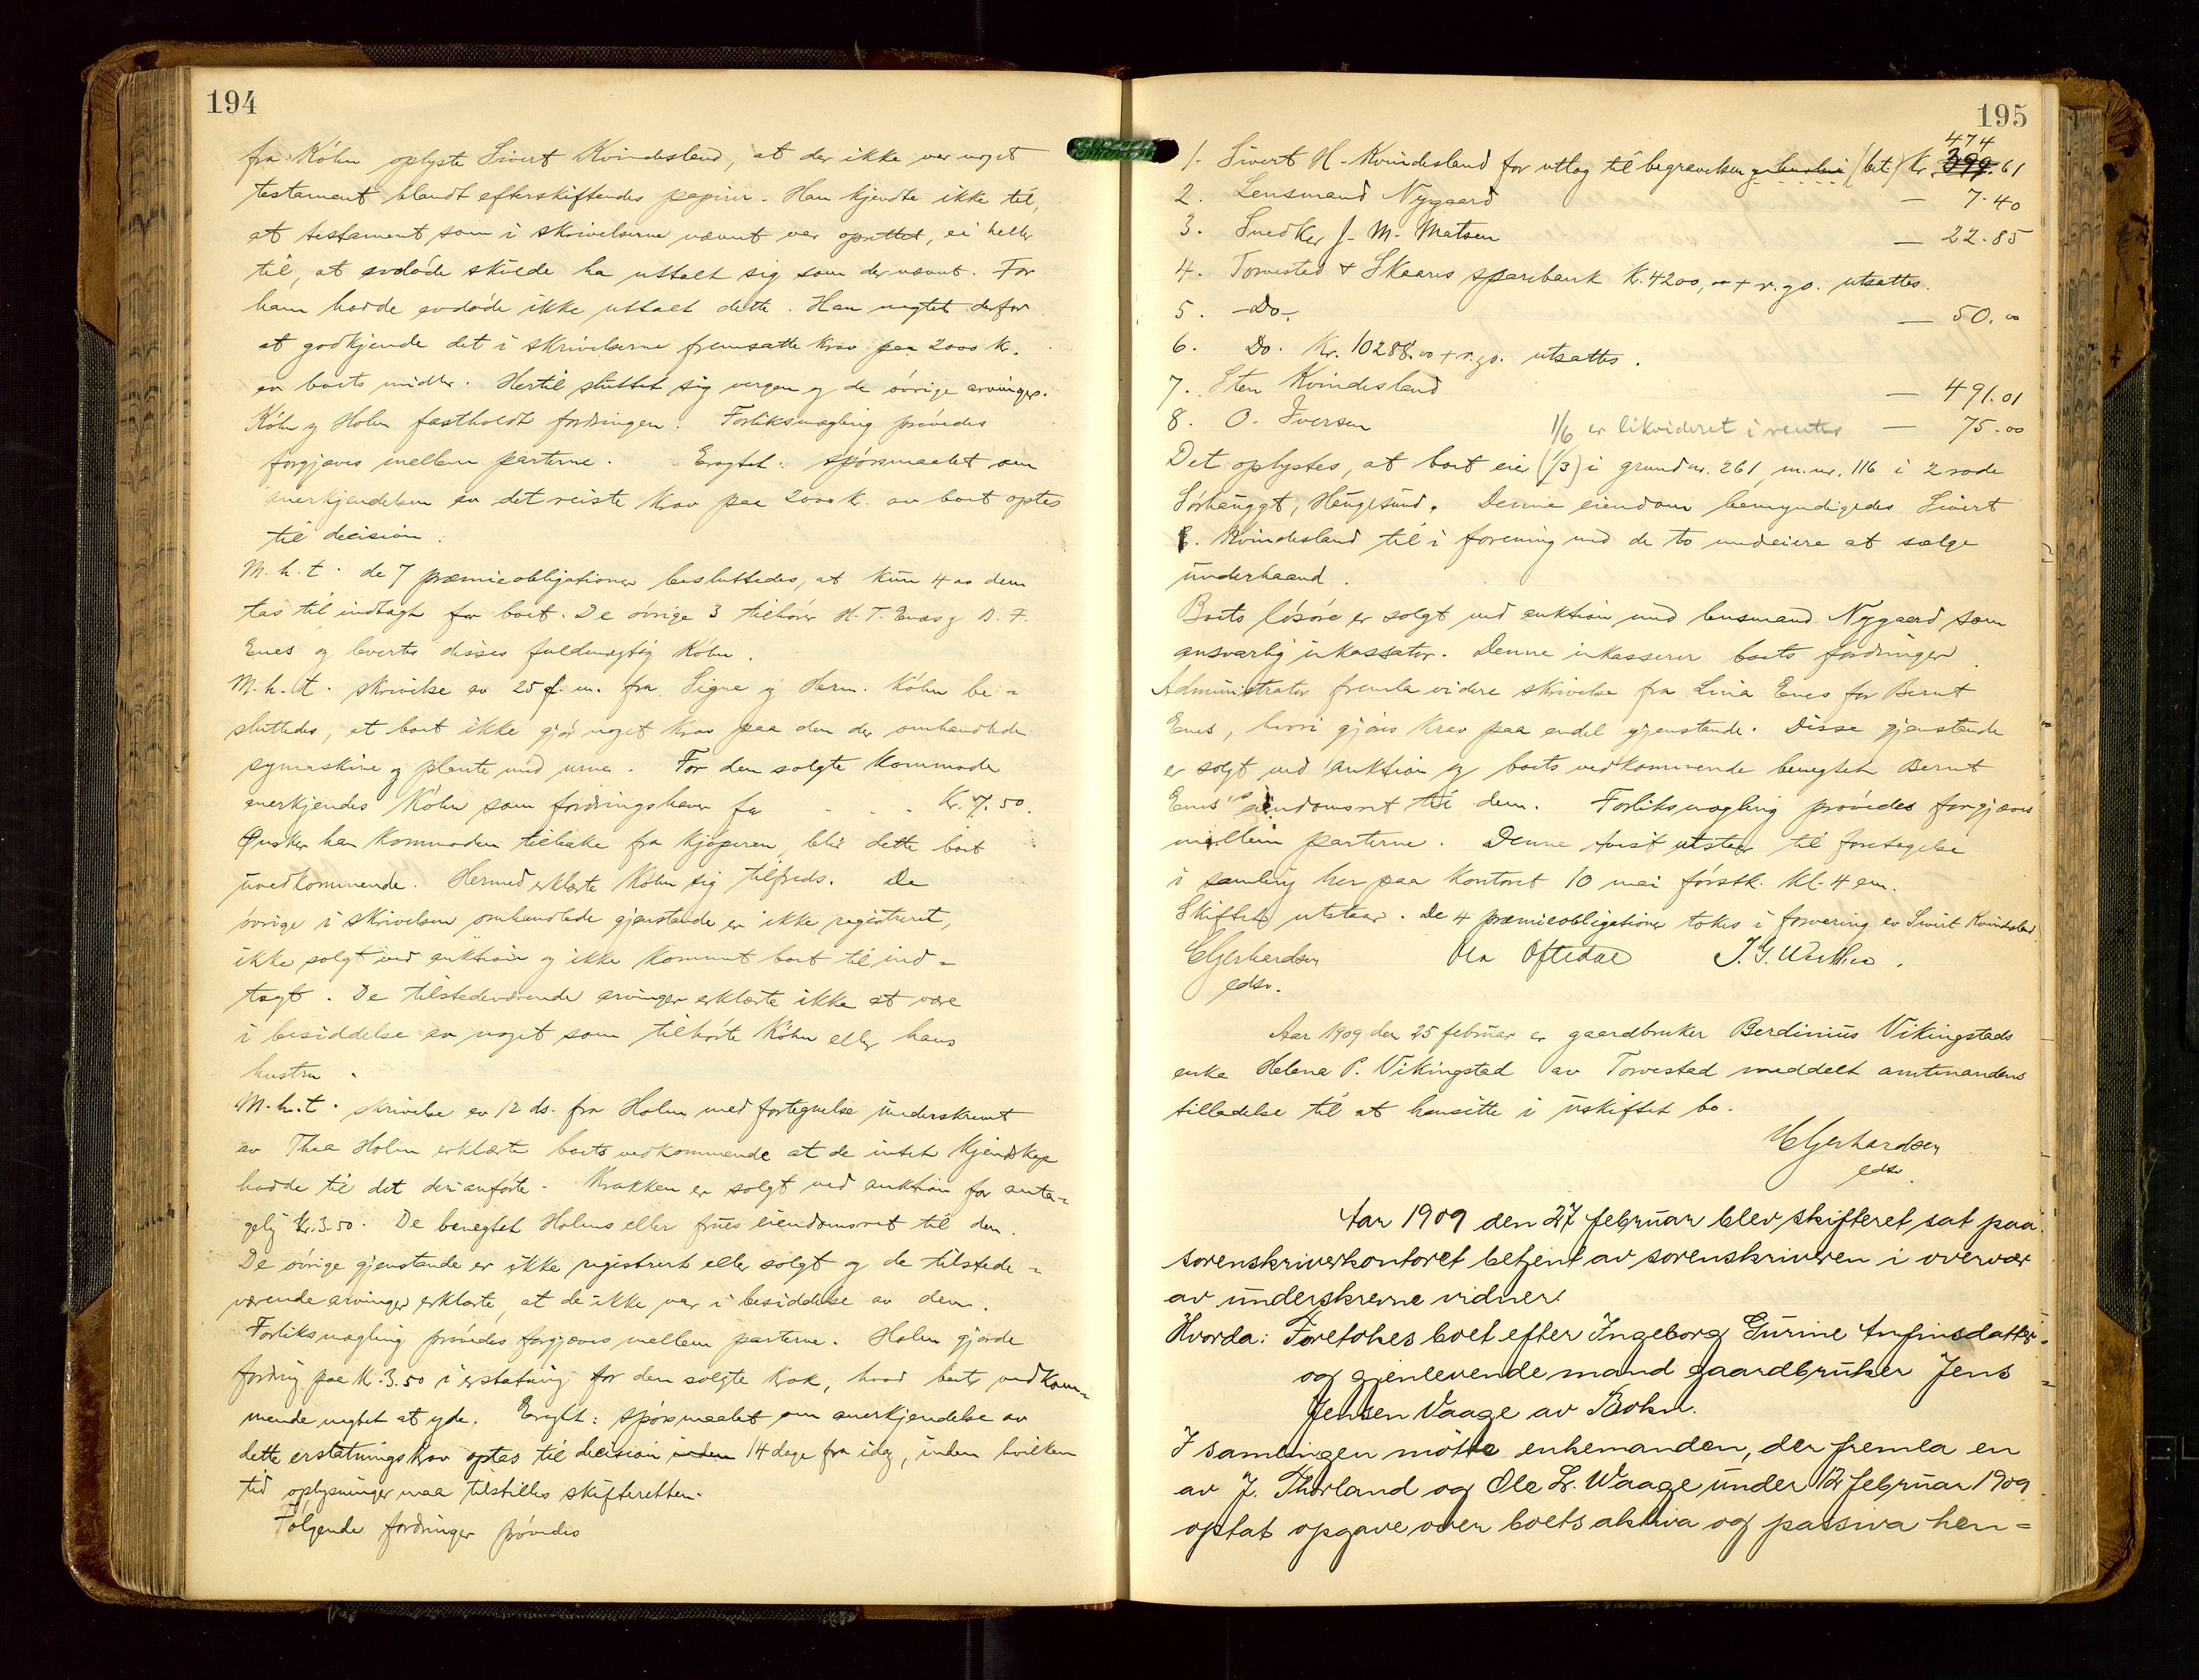 194
fra Köhn oplyste Sivert Kvindesland, at der ikke var noget
testament blandt efterskiftendes papirer. Han kjendte ikke til,
at testament som i skrivelserne nævnt var oprettet, ei heller
til, at avdøde skulde ha uttalt sig som der nævnt. For
ham hadde avdøde ikke uttalt dette. Han negtet derfor
at godkjende det i skrivelserne fremsatte krav paa 2000 kr.
av boets midler. Hertil sluttet sig vergen og de övrige arvinger.
Köhn og Holm fastholdt fordringen. Forliksmægling prövedes
forgjæves mellem parterne. Eragtet: spörsmaalet om
anerkjendelsen av det reiste krav paa 2000 kr. av boet optas
til decision.
M.h.t. de 7 præmieobligationer besluttedes, at kun 4 av dem
tas til indtægt for boet. De övrige 3 tilhörer H. T. Enes og B. F.
Enes og levertes disses fuldmægtig Köhn.
M.h.t. skrivelse av 25 f.m. fra Signe og Herm. Köhn be-
sluttedes, at boet ikke gjör noget krav paa den der omhandlede
symaskine og plante med urne. For den solgte kommode
anerkjendes Köhn som fordringshaver for - - - kr. 7.50.
Ønsker han kommoden tilbake fra kjöperen, blir dette boet
uvedkommende. Hermed erklærte Köhn sig tilfreds. De
övrige i skrivelsen omhandlede gjenstande er ikke registreret,
ikke solgt ved auktion og ikke kommet boet til ind-
tægt. De tilstedeværende arvinger erklærte ikke at være
i besiddelse av noget som tilhörte Köhn eller hans
hustru.
M.h.t. skrivelse av 12 ds. fra Holm med fortegnelse underskrevet
av Thea Holm erklærte boets vedkommende at de intet kjendskap
hadde til det deri anförte. Krakken er solgt ved auktion for anta-
gelig kr. 3.50. De benegtet Holms eller frues eiendomsret til den.
De övrige gjenstande er ikke registrert eller solgt og de tilstede-
værende arvinger erklærte, at de ikke var i besiddelse av dem.
Forliksmægling prövedes forgjæves mellem parterne. Holm gjorde
fordring paa kr. 3.50 i erstatning for den solgte krak, hvad boets vedkom-
mende negtet at yde. Eragtet: spörsmaalet om anerkjendelse av
dette erstatningskrav optas til decision inden 14 dage fra idag, inden hvilken
tid oplysninger maa tilstilles skifteretten.
Følgende fordringer prövedes
195
474
1. Sivert H. Kvindesland for utlæg til begravelsen (bet.) kr. 399.61
2. Lensmand Nygaard — 7.40
3. Snedker J. M. Matsen — 22.85
4. Torvestad & Skaares sparebank kr. 4200,00 + r. go. utsattes.
5. -Do- — 50.00
6. Do. kr. 10288.00 + r. go. utsattes.
7. Sten Kvindesland — 491.01
8. O. Iversen — 75.00
1/6 er likvideret i rentes
Det oplystes, at boet eier (1/3) i grund nr. 261, m.nr. 116 i 2 rode
Sörhaugt, Haugesund. Denne eiendom bemyndigedes Sivert
Kvindesland til i forening med de to medeiere at sælge
underhaand.
Boets lösöre er solgt ved auktion med lensmand Nygaard som
ansvarlig inkassator. Denne inkasserer boets fordringer.
Administrator fremla videre skrivelse fra Lina Enes for Bernt
Enes, hvori gjöres krav paa endel gjenstande. Disse gjenstande
er solgt ved auktion og boets vedkommende benegtet Bernt
Enes's eiendomsret til dem. Forliksmægling prövedes forgjæves
mellem parterne. Denne tvist utstaar til foretagelse
i samling her paa kontoret 10 mai förstk. kl. 4 em.
Skiftet utstaar. De 4 præmieobligationer tokes i forvaring av Sivert Kvindesland.
C Gjerhardsen Ola Oftedal
edsv.
Aar 1909 den 25 februar er gaardbruker Berdinius Vikingstads
enke Helena P. Vikingstad av Torvestad meddelt amtmandens
tilladelse til at hensitte i uskiftet bo.
C Gjerhardsen
edsv.
Aar 1909 den 27 februar blev skifteret sat paa
sorenskriverkontoret betjent av sorenskriveren i overvær
av underskrevne vidner.
Hvorda: Foretokes boet efter Ingeborg Gurine Anfinsdatter
og gjenlevende mand gaardbruker Jens
Jensen Vaage av Bokn.
I samlingen mötte enkemanden, der fremla en
av J. Thorland og Ole L. Waage under 12 februar 1909
optat opgave over boets aktiva og passiva hen-